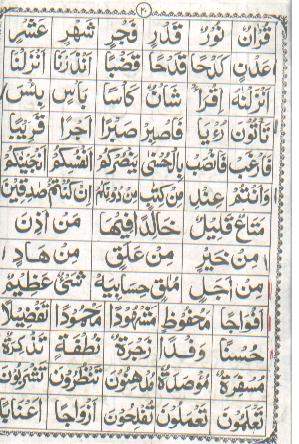 ۲۰
قُرْاٰنٌ نُوْرٌ قَدْرٍ فَجْرٍ شَهْرٍ عَشْرٍ
عَدْنٍ كَدْحًا قَدْحًا قَضْبًا اَنْذَرْنَا اَنْزَلْنَا
اَنْزَلْنٰهُ اِقْرَاْ شَاْنٌ كَاْسًا بَاْسَ بِئْسَ
تَاْتُوْنَ رُءْيَا فَاصْبِرْ صَبْرًا اَجْرًا قَرِيْبًا
فَارْغَبْ فَانْصَبْ بِالْحُسْنٰى يَنْصُرْكُمْ اَنْفُسَكُمْ اَنْجَيْنٰكُمْ
وَاَنْتُمْ عِنْدَ مِنْ كِتٰبٍ مِنْ دُوْنِكُمْ اِنْ كُنْتُمْ صٰدِقِيْنَ
مَتَاعٌ قَلِيْلٌ خَالِدًا فِيْهَا مَنْ اَذِنَ
مِنْ خَيْرٍ مِنْ عَلَقٍ مِنْ هَادٍ
مِنْ اَجَلٍ مُلٰقٍ حِسَابِيَهْ شَىْءٌ عَظِيْمٌ
اَفْوَاجًا مَحْفُوْظٍ مَشْهُوْدًا مَحْمُوْدًا تَفْصِيْلًا
حُسْنًا وَفْدًا زَجْرَةٌ نُطْفَةٍ تَذْكِرَةٌ
مُسْفِرَةٌ مُوْصَدَةٌ مُدْهِنُوْنَ تَنْظُرُوْنَ تَشْرَبُوْنَ
تَعْلَمُوْنَ تَعْمَلُوْنَ تُفْلِحُوْنَ اَزْوَاجًا اَعْنَابًا